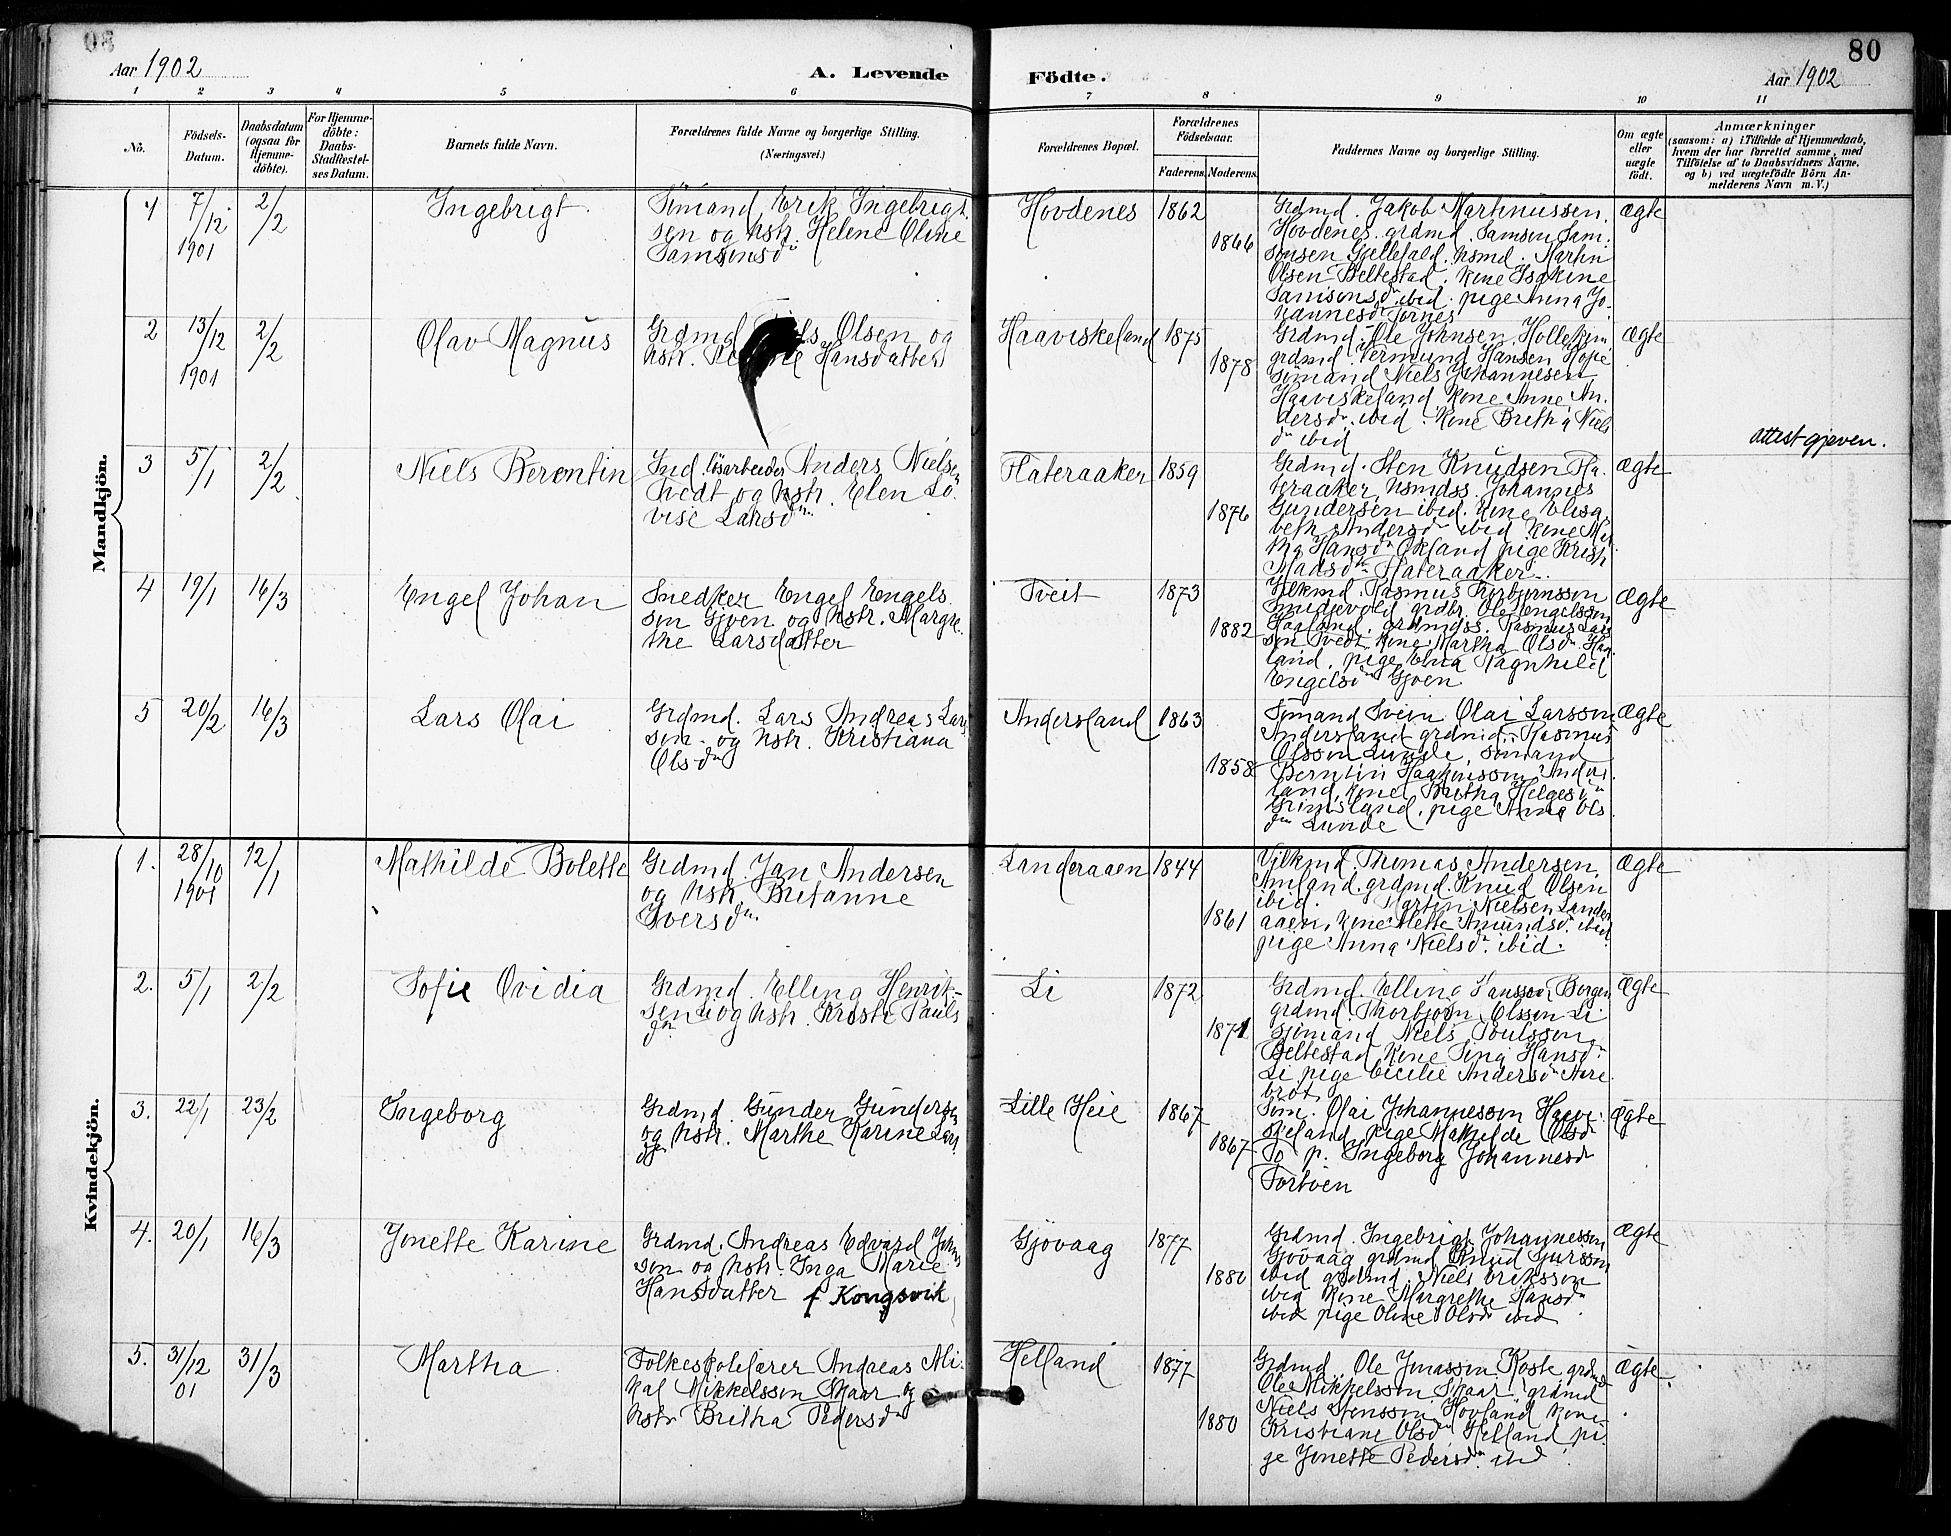 80
Aar 1902
A. Levende Födte.
Aar 1902
1 2 3 4 5 6 7 8 9 10 11
No.
Födsels-
Datum.
Daabsdatum
(ogsaa for
Hjemme-
döbte).
For Hjemme-
döbte:
Daabs-
Stadfæstel-
ses Datum.
Barnets fulde Navn.
Forældrenes fulde Navne og borgerlige Stilling.
(Næringsvei.)
Forældrenes Bopæl.
Forældrenes
Födselsaar.
Faderens. Moderens.
Faddernes Navne og borgerlige Stilling.
Om ægte
eller
uægte
født.
Anmærkninger
(saasom: a) i Tilfælde af Hjemmedaab,
hvem der har forrettet samme, med
Tilföielse af to Daabsvidners Navne,
og b) ved uægtefödte Börn An-
melderens Navn m. V.)
Mandkjön.
1 7/12 1901 2/2 Ingebrigt
Sömand Erik Ingebrigt
sen og hstr. Helene Oline
Samsonsdr
Hovdenes 1862 1866
Grdmd. Jakob Martinussen
Hovdenes, grdmd. Samson Sam-
sonsen Gjellefald, hsmd. Martin
Olsen Beltestad, kone Isakine
Samsonsdr ibid. pige Anna Jo-
hannesdr Tornes
ægte
2 13/12 1901 2/2 Olav Magnus
Grdmd Olsen og
hstr. Hansdatter
Haaviskeland 1875 1878
Grdmd. Ole Johnsen
grdmd. Vermund Hansen Hope
Sömand Niels Johannesen
Haaviskeland Kone Anne An-
dersdr ibid. Kone Britha Niels
dr ibid
ægte
attest gjeven.
3 5/1 2/2 Niels Berentin
Ind. lösarbeider Anders Nielsen
Tvedt og hstr. Elen Lo-
vise Larsdr
Flateraaker 1859 1876
Grdmd. Sten Knudsen Fla-
teraaker, hsmdss. Johannes
Gundersen ibid. Kone Elisa-
beth Andersdr ibid Kone
Hansdr Økland pige
Madsdr Flateraaker
ægte
4 19/1 16/3 Engel Johan
Snedker Engel Engels
sen Gjøen og hstr. Margre-
the Larsdatter
Tveit 1873 1882
Rasmus Torbjørnsson
grdbr. Ole Engelssen
Haaland, grdmdss. Rasmus Lars
sen Tvedt, kone Martha Olsdr Haa-
land, pige Ragnhild
Engelsdr Gjøen
ægte
5 20/2 16/3 Lars Olai
Grdmd. Lars Andreas Lars
sen og hstr. Kristiana
Olsdr
Andersland 1863 1858
Sömand Svein Olai Larsson
Andersland grdmd. Rasmus
Olsson Lunde, sömand
Berntin Haakonsson Anders-
land, kone Britha Helgesdr
Grimsland, pige Anna Ols
dr Lunde
ægte
Kvindekjön.
1. 28/10 1901 12/1 Mathilde Bolette
Grdmd. Jan Andersen
og hstr. Britanne
Iversdr
Landeraaen 1844 1861
Vilkmd. Thomas Andersen
Amland, grdmd. Knud Olsen
ibid. Martin Nielsen Lander
aaen, kone Mette Amundsdr ibid
pige Anna Nielsdr ibid.
ægte
2. 5/1 2/2 Sofie Ovidia
Grdmd. Elling Henrik-
sen og hstr. Kristi Pauls
dr
Li 1872 1871
Grdmd. Elling Hansson, Borgen
grdmd. Thorbjörn Olsson Li
sjömand Niels Poulsson
Beltestad Kone Sina Hansdr
Li pige Cicilie Andersdr Aare
brot
ægte
3. 22/1 23/2 Ingeborg
Grdmd. Gunder Gunders
og hstr. Marthe Karine Lars
dr
Lille Heie 1867 1867
Søm. Olai Johannesson Haavi-
skeland, pige Mathilde Olsdr
To p. Ingeborg Johannesdr
Fortoen
ægte
4. 20/1 16/3 Jonette Karine
Grdmd. Andreas Edvard Johns
sen og hstr. Inga Marie
Hansdatter f Kongsvik
Gjövaag 1877 1880
Grdmd. Ingebrigt Johannesson
Gjövaag grdmd Knud Sjursson
ibid grdmd. Niels Eriksson
ibid Kone Margrethe Hansdr
ibid pige Oline Olsdr ibid
ægte
5. 31/12 01 31/3 Martha
Folkeskolelærer Andreas Mi-
kal Mikkelsson Skaar og
hstr Britha Pedersdr
Helland 1877 1880
Grdmd. Ole Jonasson Koste grdmd
Ole Mikkelsson Skaar, grdmd
Niels Stensson Hovland kone
Kristiane Olsdr Helland pi-
ge Jonette Pedersdr ibid
ægte